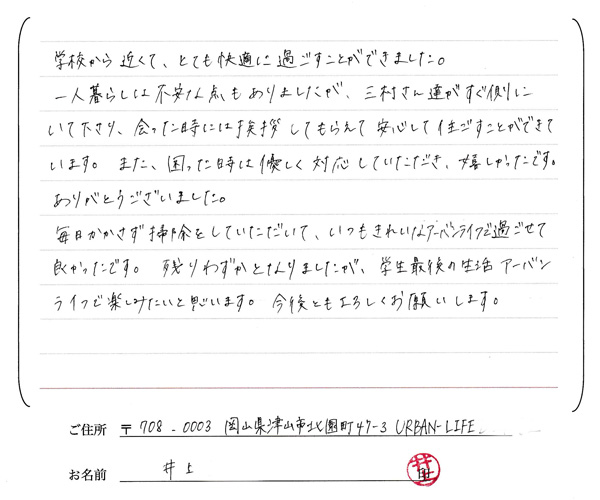 学校から近くて、とても快適に過ごすことができました。
一人暮らしは不安な点もありましたが、三村さん達がすぐ側に
いて下さり、会った時には挨拶してもらえて安心して住ごすことができて
います。また、困った時は優しく対応していただき、嬉しかったです。
ありがとうございました。
毎日かかさず掃除をしていただいて、いつもきれいなアーバンライフで過ごせて
良かったです。残りわずかとなりましたが、学生最後の生活アーバン
ライフで楽しみたいと思います。今後ともよろしくお願いします。
ご住所 〒708-0003 岡山県津山市北園町47-3 URBAN-LIFE
お名前 井上